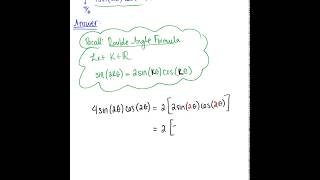 Answer:
Recall: Double Angle Formula
Let K ∈ ℝ
sin(2kθ) = 2sin(kθ)cos(kθ)
4sin(2θ)cos(2θ) = 2[2sin(2θ)cos(2θ)]
= 2[